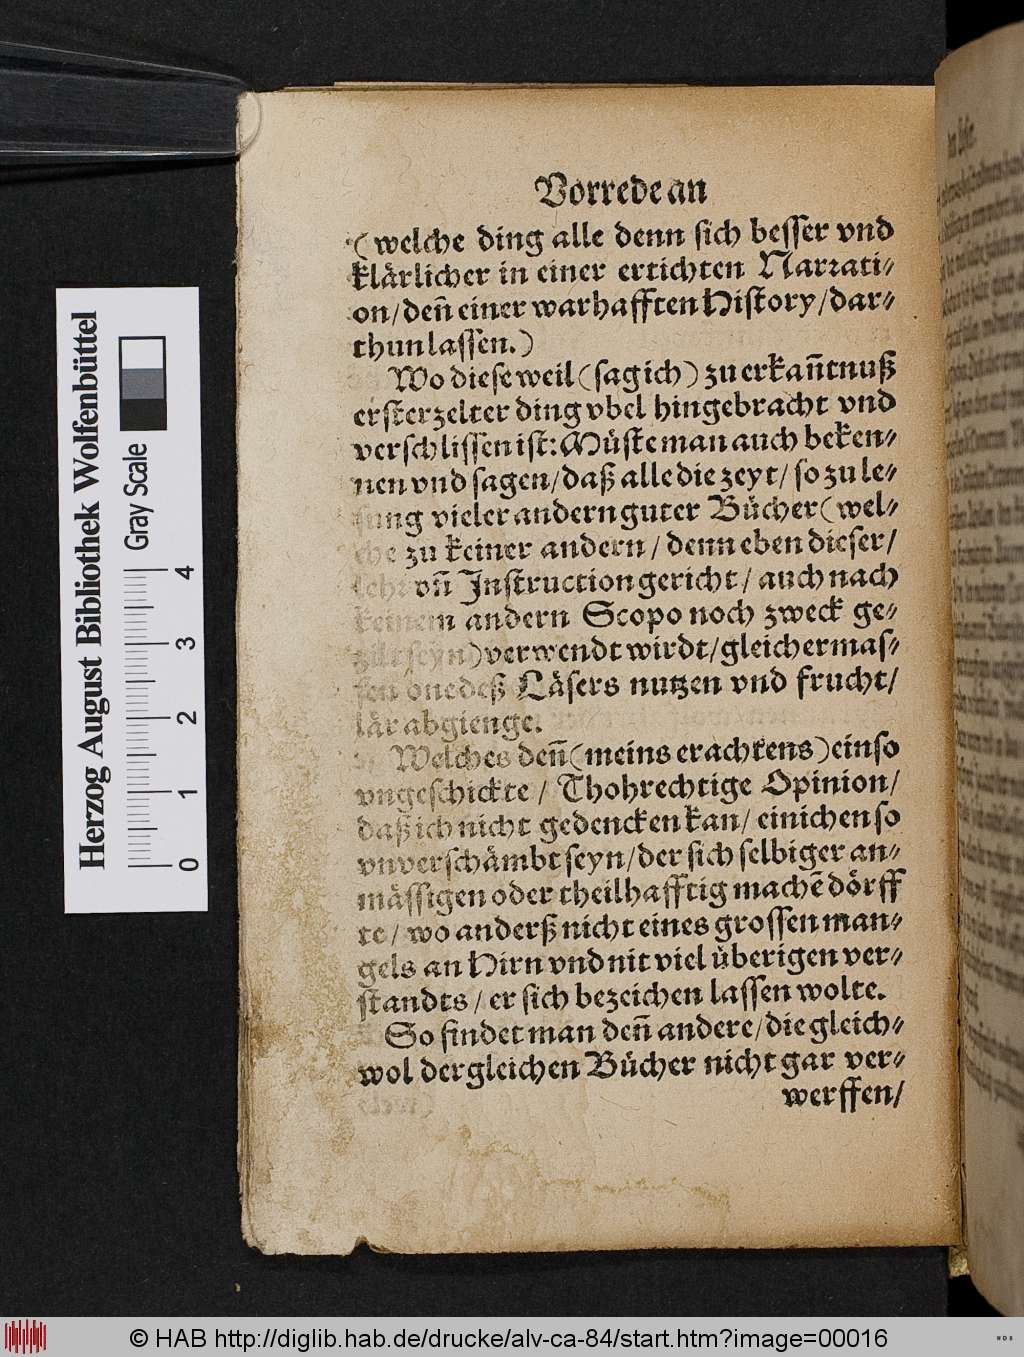 Vorrede an
(welche ding alle denn sich besser vnd
klärlicher in einer ertichten Narrati-
on/ deñ einer warhafften History/ dar-
thun lassen.)
Wo diese weil (sag ich) zu erkañtnuß
ersterzelter ding vbel hingebracht vnd
verschlissen ist: Müste man auch beken-
nen vnd sagen/ daß alle die zeyt/ so zu le-
sung vieler andern guter Bücher (wel-
che zu keiner andern/ denn eben dieser/
lehr vñ Instruction gericht/ auch nach
keinem andern Scopo noch zweck ge-
zilt seyn) verwendt wirdt/ gleichermas-
sen one deß Läsers nutzen vnd frucht/
lär abgienge.
Welches deñ (meins erachtens) ein so
vngeschickte/ Thohrechtige Opinion/
daß ich nicht gedencken kan/ einichen so
vnverschämbt seyn/ der sich selbiger an-
mässigen oder theilhafftig machē dörff
te/ wo anderß nicht eines grossen man-
gels an Hirn vnd nit viel überigen ver-
standts/ er sich bezeichen lassen wolte.
So findet man deñ andere/ die gleich-
wol dergleichen Bücher nicht gar ver-
werffen/
Herzog August Bibliothek Wolfenbüttel
Gray Scale
0 1 2 3 4
© HAB http://diglib.hab.de/drucke/alv-ca-84/start.htm?image=00016